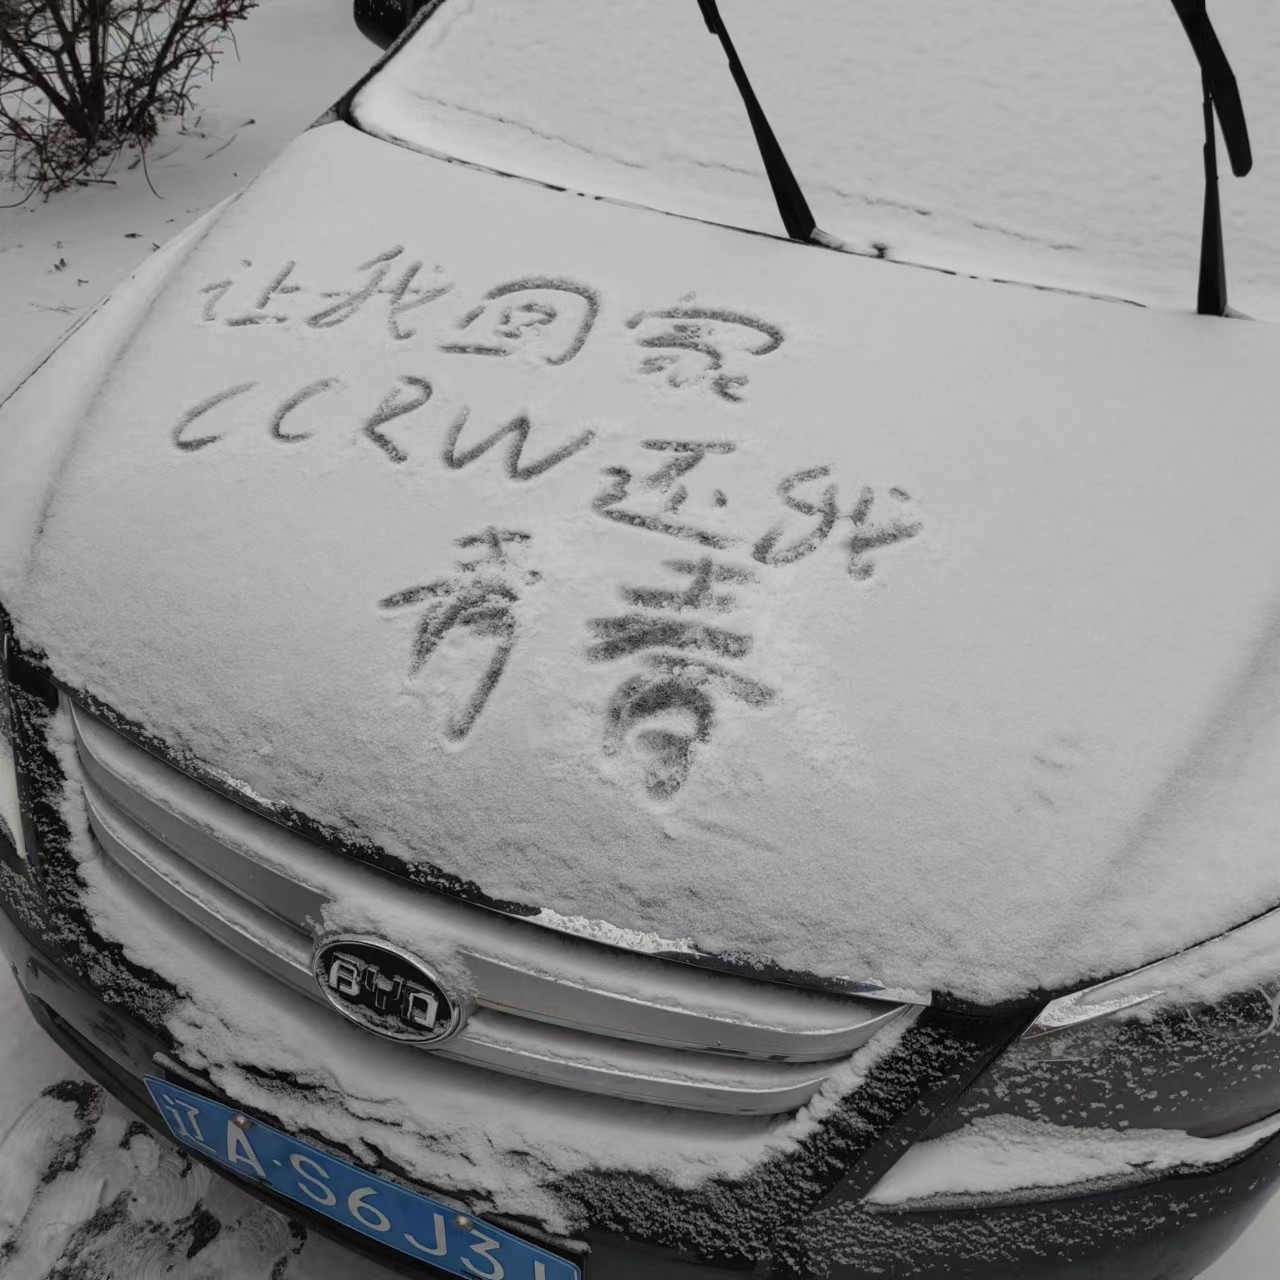 让我回家
CCRW还我
青春
BYD
辽A·S6J3